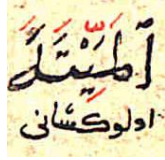 ٱلْمَيْتَةَ
اولوكشانى